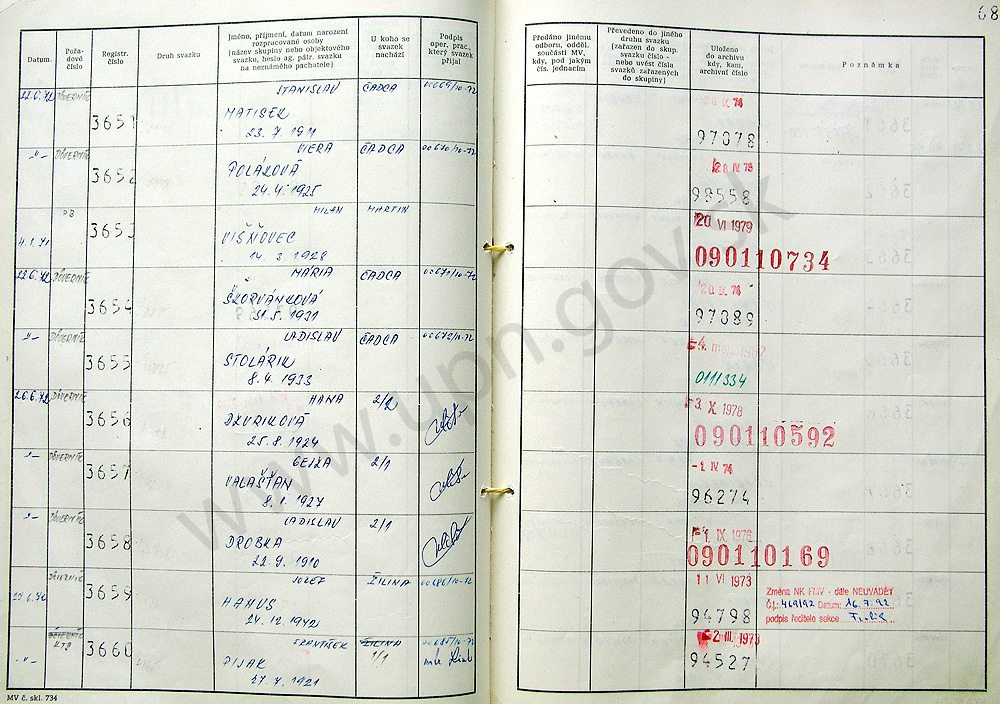 68
Datum.
Pořa-
dové
číslo
Registr.
číslo
Druh svazku
Jméno, příjmení, datum narození
rozpracované osoby
(název skupiny nebo objektového
svazku, heslo ag. pátr. svazku
na neznámého pachatele)
U koho se
svazek
nachází
Podpis
oper. prac.,
který svazek
přijal
Předáno jinému
odboru, odděl.
součásti MV,
kdy, pod jakým
čís. jednacím
Převedeno do jiného
druhu svazku
(zařazen do skup.
svazku číslo -
nebo uvést čísla
svazků zařazených
do skupiny)
Uloženo
do archivu
kdy, kam,
archivní číslo
Poznámka
22.6.72 DŮVERNÍK 3651 STANISLAV ČADCA 00669/10-72
MATISEK
23. 7. 1911
97078
-"- DŮVERNÍK 3652 VIERA ČADCA 00670/10-72
POLÁKOVÁ
24. 4. 1925
28 IV 75
98558
PB 3653 MILAN MARTIN
4.1.71 VIŠŇOVEC
14. 3. 1928
20 VI 1979
090110734
22.6.72 DŮVERNÍK 3654 MÁRIA ČADCA 00671/10-72
ŠKORVÁNKOVÁ
31. 5. 1931
97089
-"- DŮVERNÍK 3655 LADISLAV ČADCA 00672/10-72
STOLÁRIK
8. 4. 1933
0111/334
26.6.72 DŮVERNÍK 3656 HANA 2/2
DZURIKOVÁ
25. 8. 1924
-3. X 1978
090110592
-"- DŮVERNÍK 3657 GEJZA 2/1
VALAŠŤAN
8. 1. 1927
-1. IV. 74
96274
-"- DŮVERNÍK 3658 LADISLAV 2/1
DROBKA
22. 9. 1910
-1. IX. 1976
090110169
DŮVERNÍK 3659 JOZEF ŽILINA 00686/10-72
HANUS
24. 12. 1942
11 VI 1973
94798
Změna NK FMV - dále NEUVÁDĚT
Čj.: 469/92 Datum: 16.7.92
podpis ředitele sekce
-"- 3660 FRANTIŠEK ŽILINA 00685/10-72
1/1
PIJAK
27. 7. 1921
-2. III. 1973
94527
MV č. skl. 734
www.upn.gov.sk